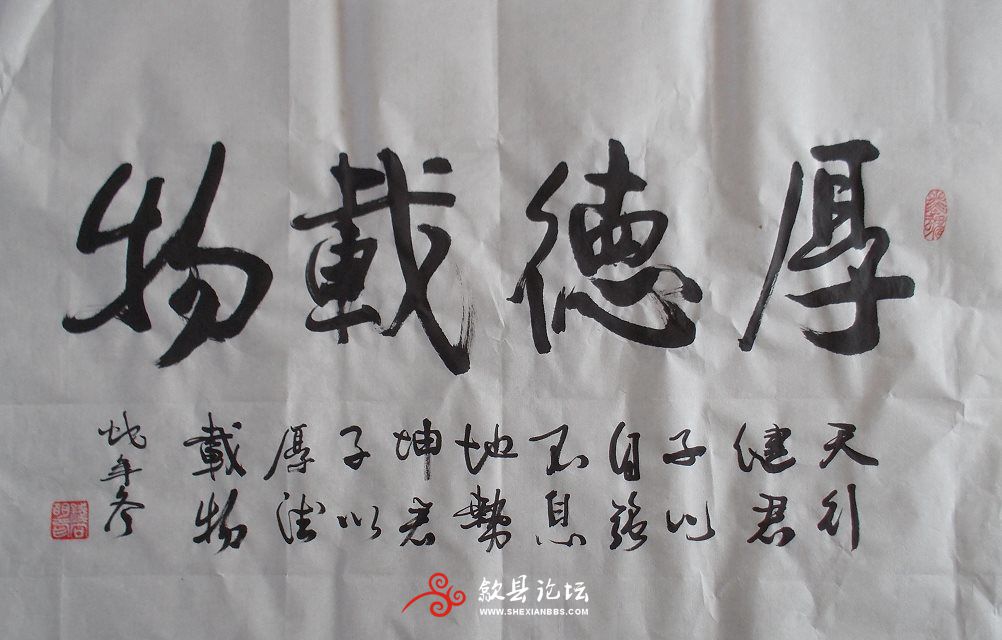 厚德載物
天行
健君
子以
自强
不息
地勢
坤君
子以
厚德
載物
蛇年冬
歙县论坛
WWW.SHEXIANBBS.COM